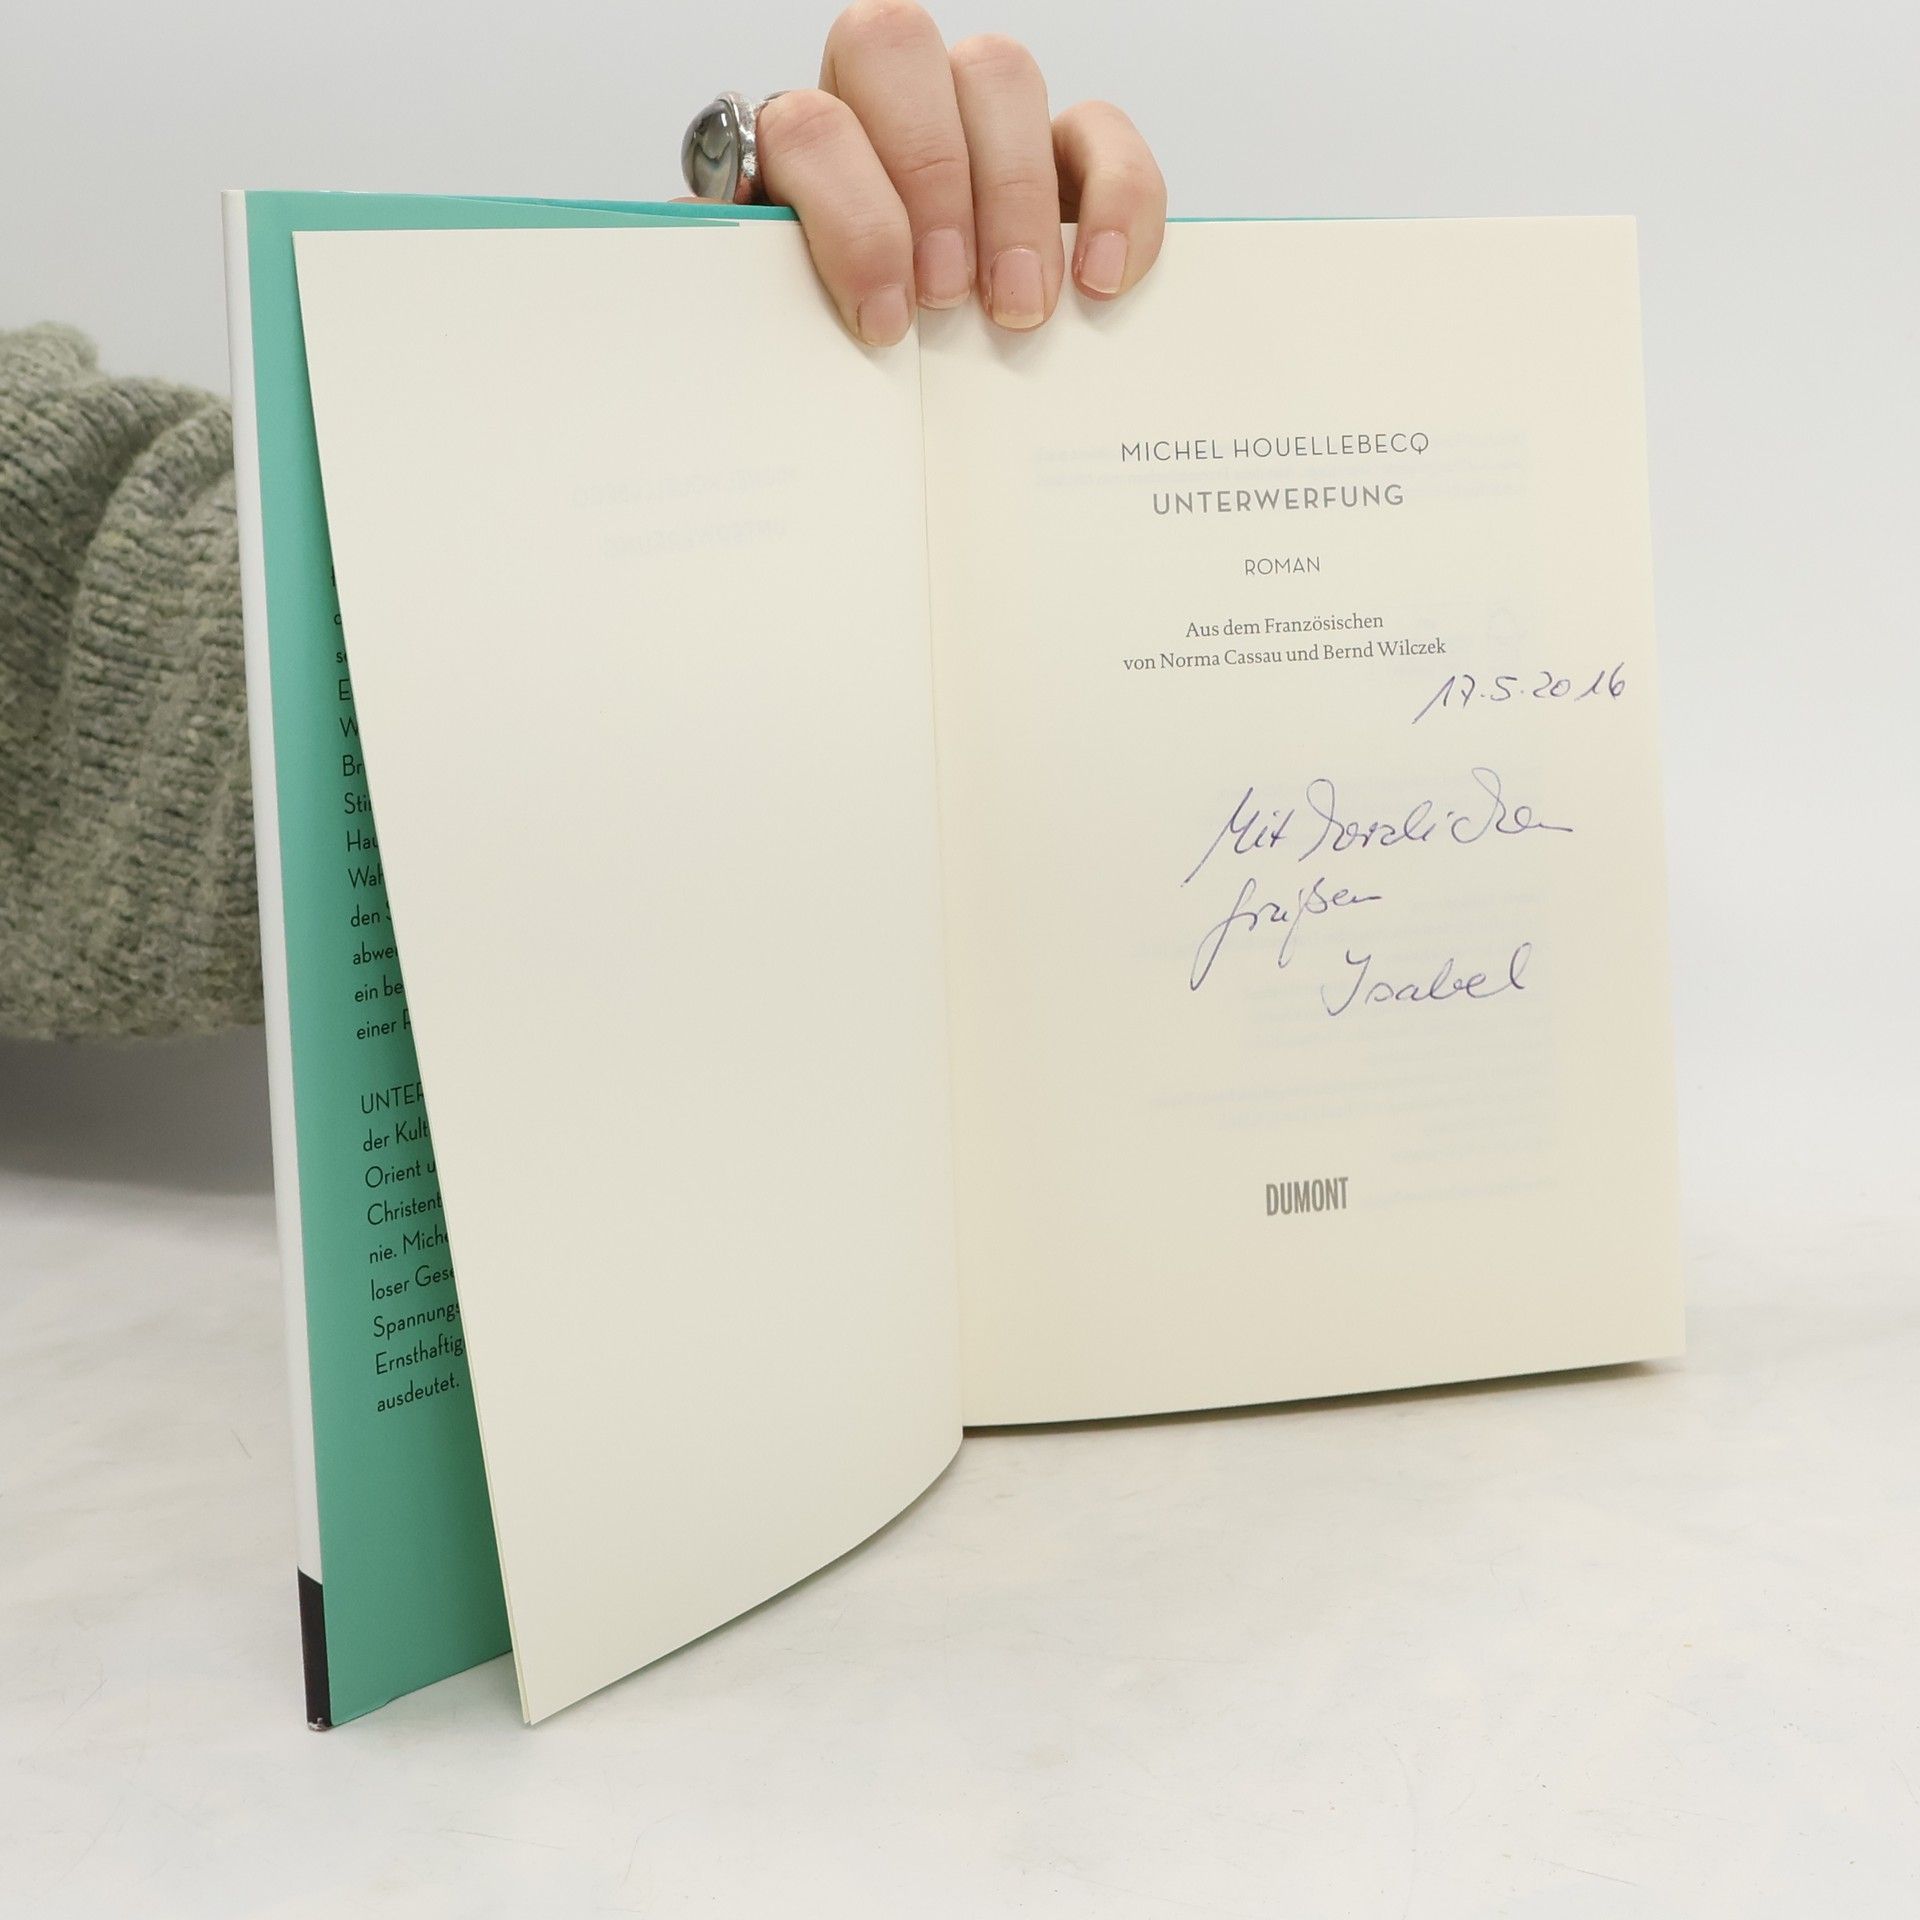 MICHEL HOUELLEBECQ
UNTERWERFUNG
ROMAN
Aus dem Französischen
von Norma Cassau und Bernd Wilczek
17.5.2016
Mit herzlichen
Grüßen
Isabel
DUMONT
Wah
den
abwe
ein be
einer
UNTER
der Kult
Orient u
Christent
nie. Miche
loser Gese
Spannungs
Ernsthaftig
ausdeutet.